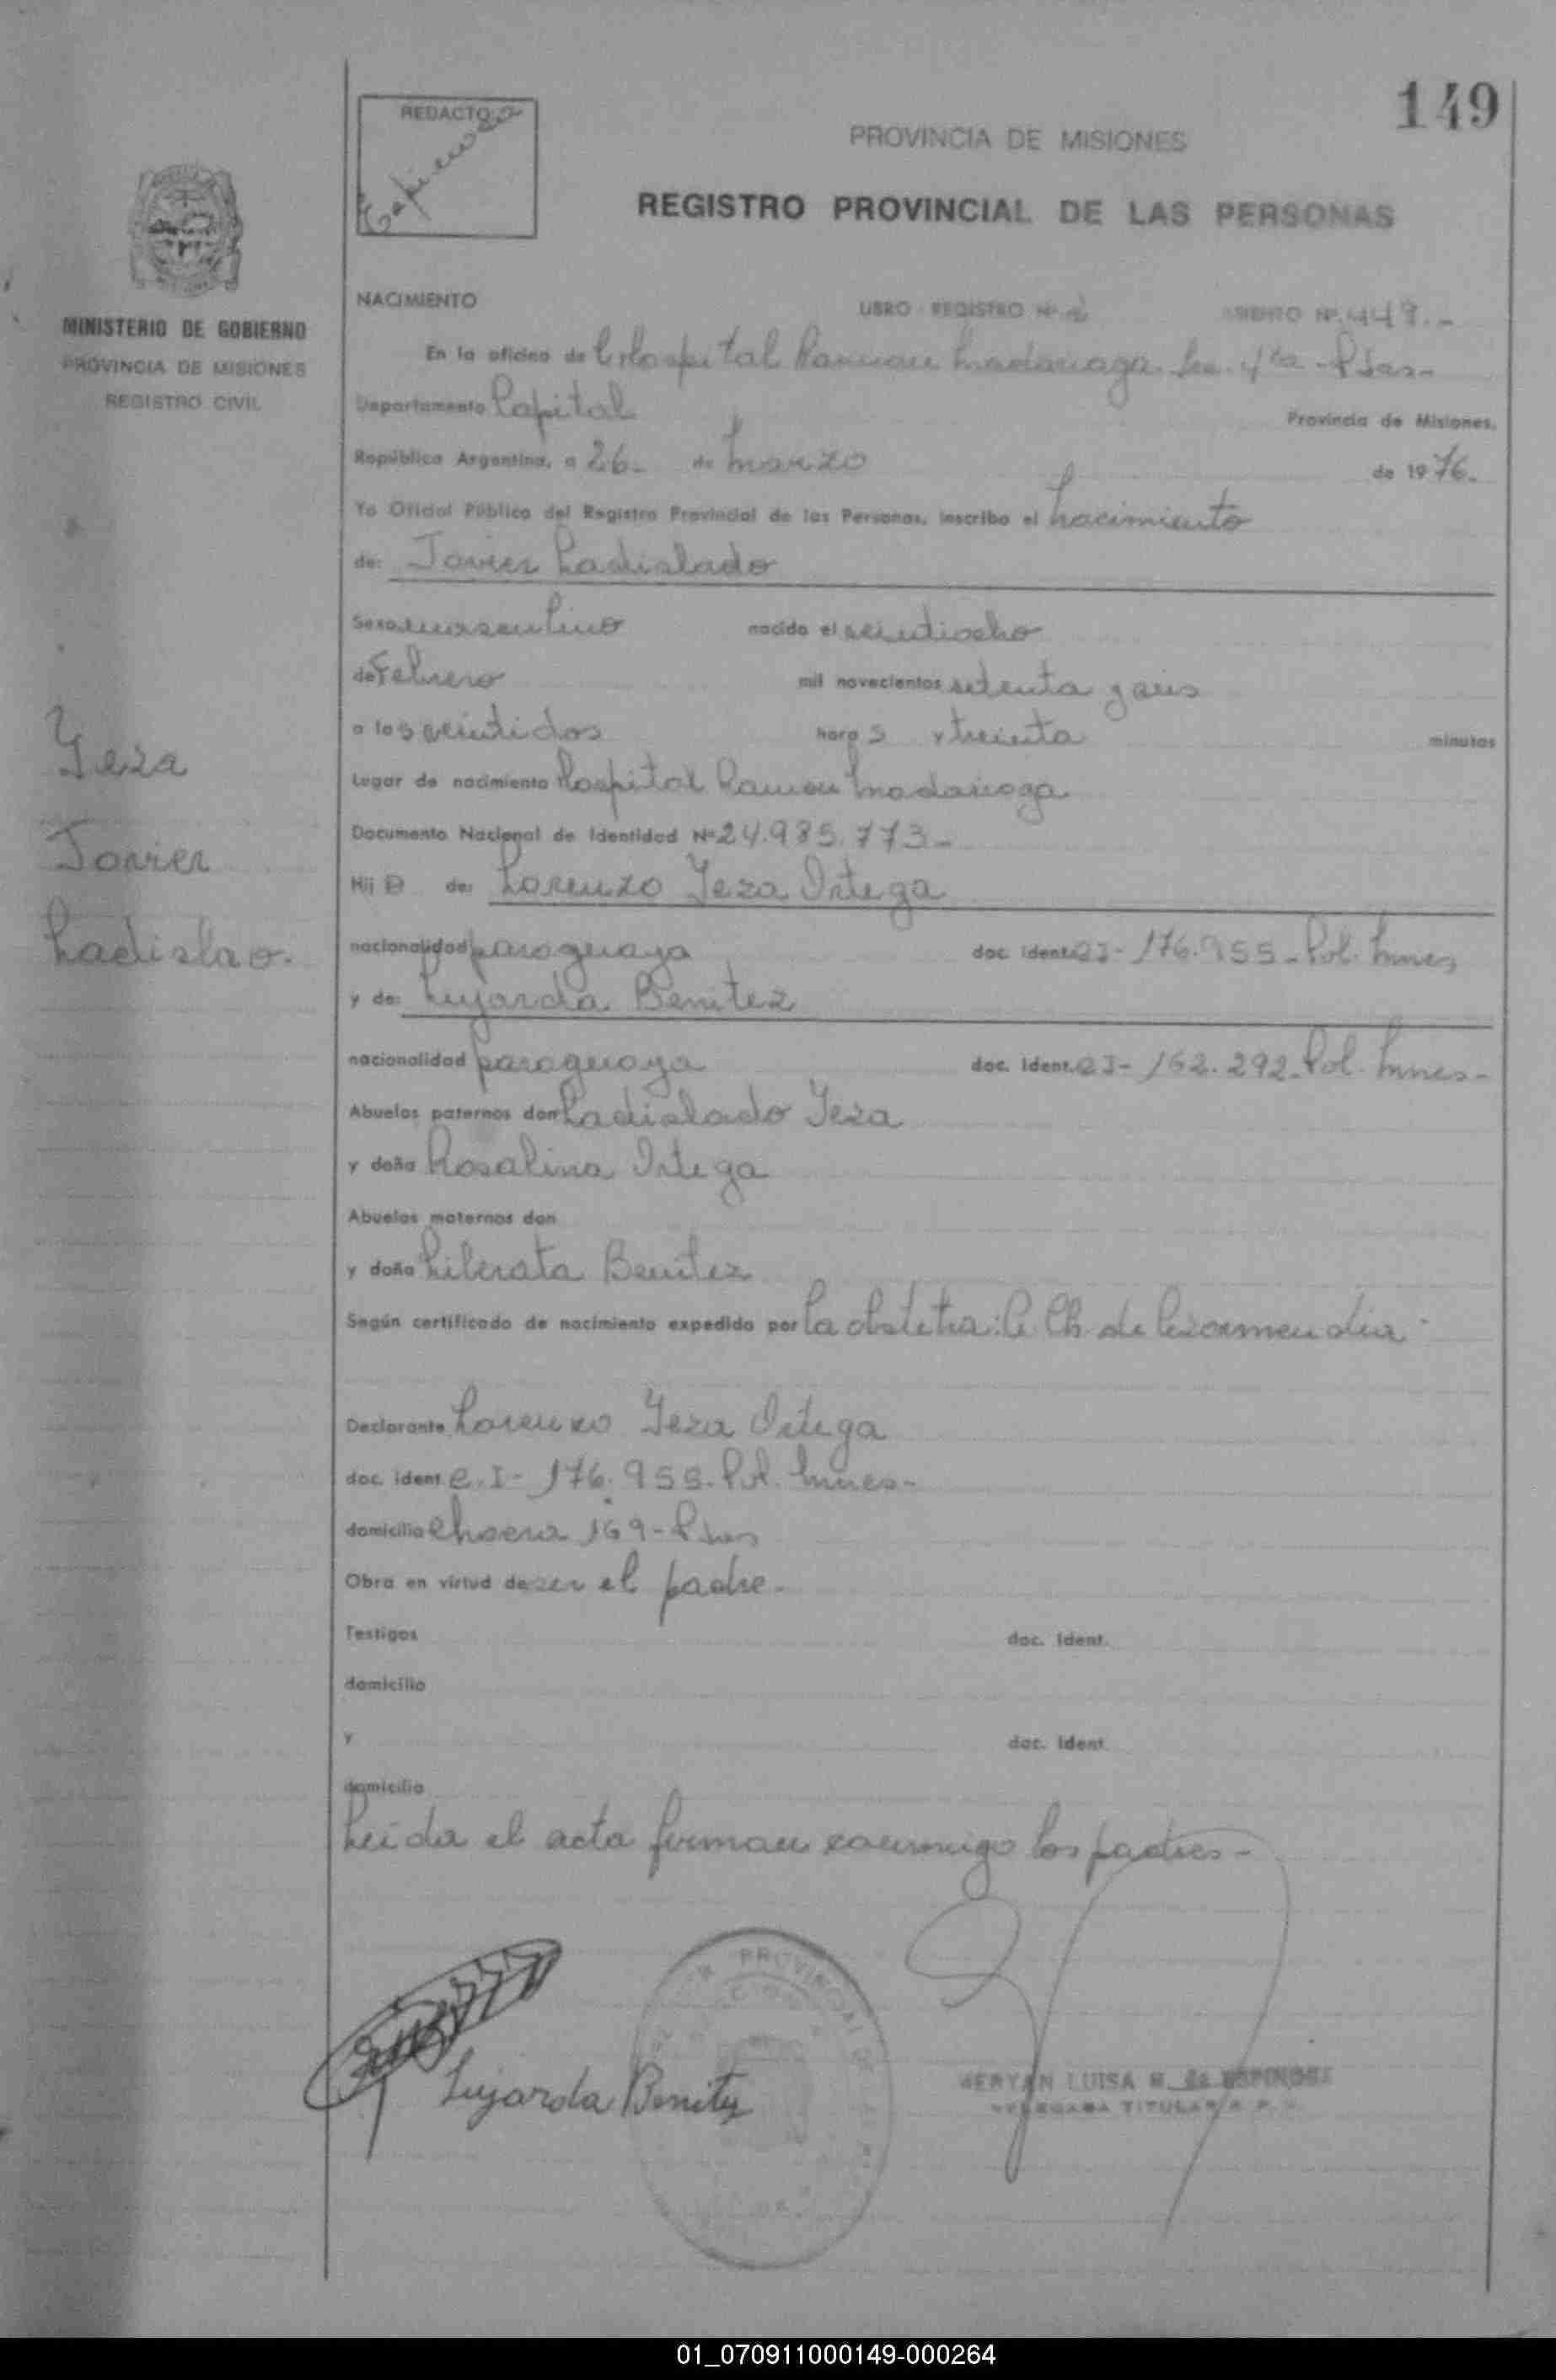 149
REDACTO
PROVINCIA DE MISIONES
REGISTRO PROVINCIAL DE LAS PERSONAS
MINISTERIO DE GOBIERNO
PROVINCIA DE MISIONES
REGISTRO CIVIL
NACIMIENTO LIBRO REGISTRO Nº ASIENTO Nº 449.-
En la oficina de Hospital Ramon Madariaga Sec. 4ta - Pdas-
Departamento Capital Provincia de Misiones.
República Argentina, a 26- de Marzo de 1976.
Yo Oficial Público del Registro Provincial de las Personas, inscribo el Nacimiento
de: Javier Ladislado
Sexo masculino nacido el veintiocho
de Febrero mil novecientos setenta y seis
a las veintidos horas y treinta minutos
Lugar de nacimiento Hospital Ramon Madariaga
Documento Nacional de Identidad Nº 24.985.773-
Hijo de: Lorenzo Yeza Ortega
nacionalidad paraguaya doc. ident. CI- 176.955- Pol. Mnes
y de: Lujarda Benitez
nacionalidad paraguaya doc. ident. CI- 162.292- Pol. Mnes-
Abuelos paternos don Ladislado Yeza
y doña Rosalina Ortega
Abuelos maternos don
y doña Liberata Benitez
Según certificado de nacimiento expedido por La obstetra: C. Ch. de
Declarante Lorenzo Yeza Ortega
doc. ident. C.I- 176.955- Pol. Mnes-
domicilio Chacra 169- Pdas
Obra en virtud de ser el padre-
Testigos doc. ident.
domicilio
y doc. ident.
domicilio
Leida el acta firman conmigo los padres-
Yeza
Javier
Ladislao.
Lujarda Benitez
PROVINCIAL
LUISA M. de ESPINOSA
DELEGADA TITULAR R. P. P.
01_070911000149-000264